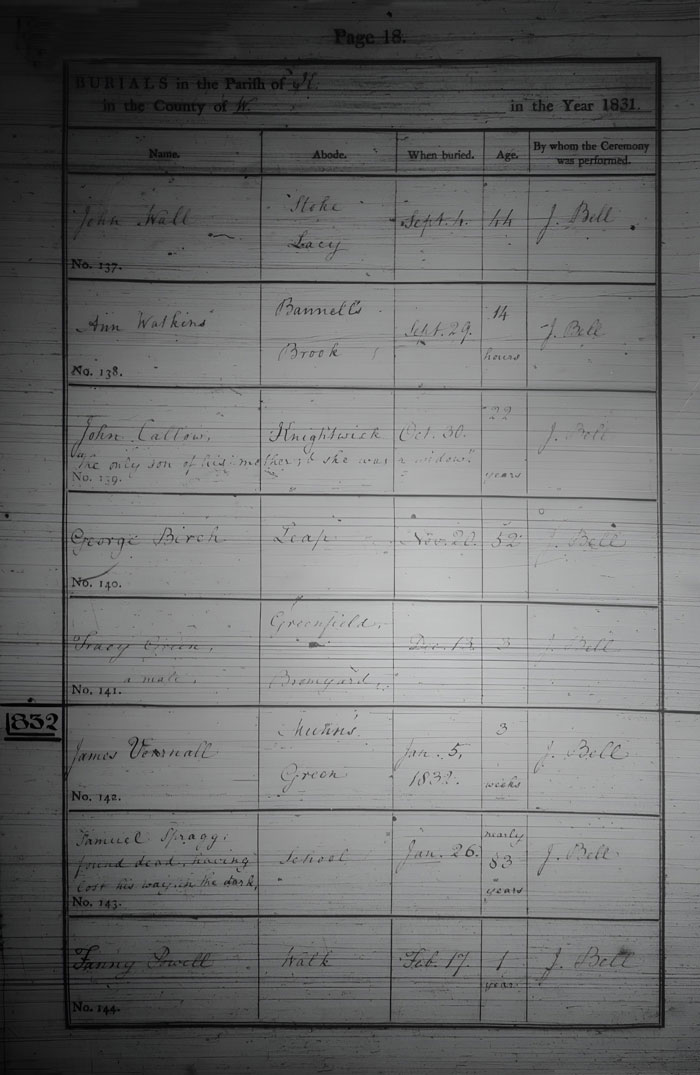 Page 18.
BURIALS in the Parish of
in the County of W. in the Year 1831.
Name. Abode. When buried. Age. By whom the Ceremony was performed.
John Wall Stoke Lacy Sept. 4. 44 J. Bell
No. 137.
Ann Watkins Bannell's Brook Sept. 29. 14 hours J. Bell
No. 138.
John Callow, Knightwick Oct. 30. 22 years J. Bell
"the only son of his mother, & she was a widow."
No. 139.
George Birch Leap Nov. 20. 52 J. Bell
No. 140.
Tracy Green, Greenfield, Dec. 13. 3 J. Bell
a male, Bromyard,
No. 141.
1832
James Green Jan. 5, 1832. 3 weeks J. Bell
No. 142.
Samuel Spragg; School Jan. 26. nearly 83 years J. Bell
found dead, having
lost his way in the dark,
No. 143.
Fanny Powell Walk Feb. 17. 1 year J. Bell
No. 144.